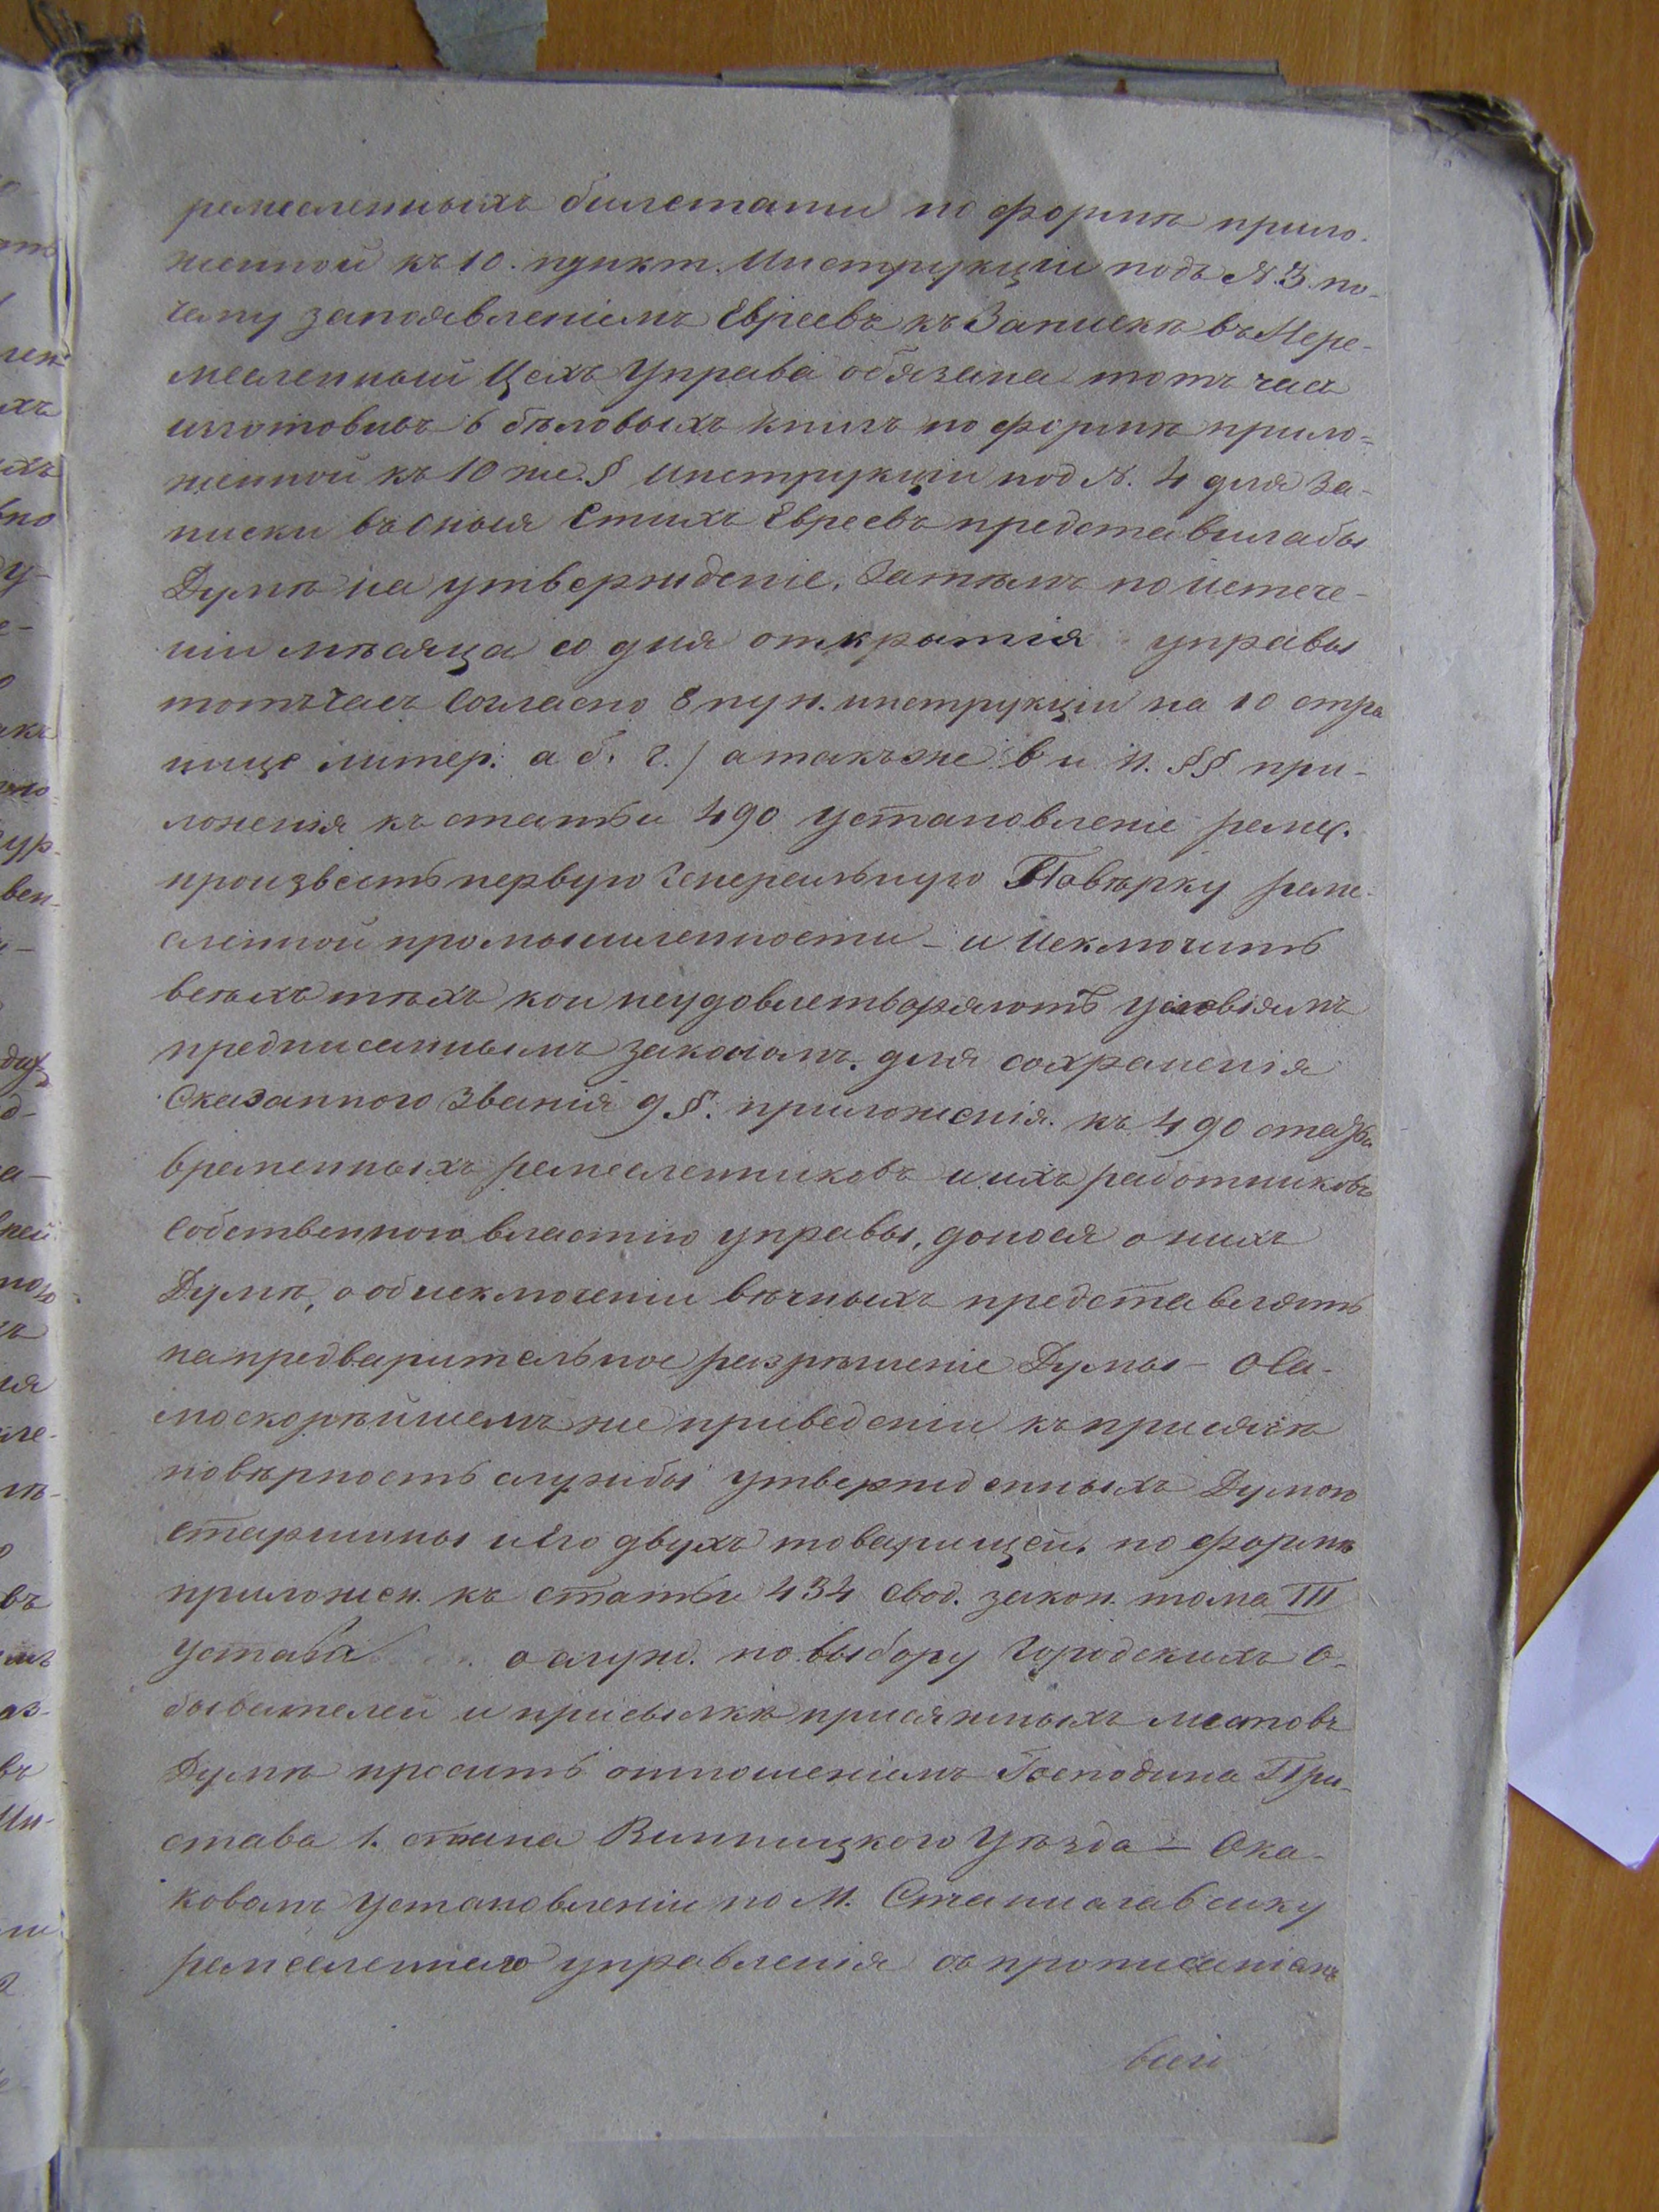 ремесленныхъ билетами по формѣ прило-
женной къ 10. пункт. Инструкціи подъ N. 3. по-
чему запоявленіемъ Евреевъ къ Запискѣ въ Нере-
месленный Цехъ Управа обязана тотъ часъ
изготовивъ 6 бѣловыхъ книгъ по формѣ прило=
женной къ 10 же § инструкціи под N. 4 для За-
писки въ оныя Стихъ Евреевъ представила бы
Думѣ на утвержденіе. Затѣмъ по истече-
ніи мѣсяца со дня открытія управы
тотъчасъ Согласно 8 пун. инструкціи на 10 стра
нице литер: а б. г. / а такъже в и н. §§ при-
ложенія къ статьи 490 установленіе ремес.
произвесть первую Генеральную Повѣрку реме-
сленной промышленности - и Исключить
всѣхъ тѣхъ кои неудовлетворяютъ условіямъ
предписаннымъ закономъ для сохраненія
Сказаннаго Званія 9 §. приложенія. къ 490 статьѣ
временныхъ ремесленниковъ и ихъ работниковъ
Собственною властію управы, донося о нихъ
Думѣ, а объ исключеніи вѣчныхъ представлять
на предварительное разрѣшеніе Думы - О Са-
москорѣйшемъ же приведеніи къ присягѣ
на вѣрность службы утвержденныхъ Думою
Старшины и Его двухъ товарищей. по формѣ
приложен. къ Статьи 434 Свод. закон. тома III
устава о служ. по выбору Городскихъ О-
бывателей и присылкѣ присяжныхъ листовъ
Думѣ просить отношеніемъ Господина При-
става 1. стана Винницкого Уѣзда - Ока-
ковомъ Установленіи по М. Станиславчику
ремесленнаго управленія съ прописаніемъ
всего